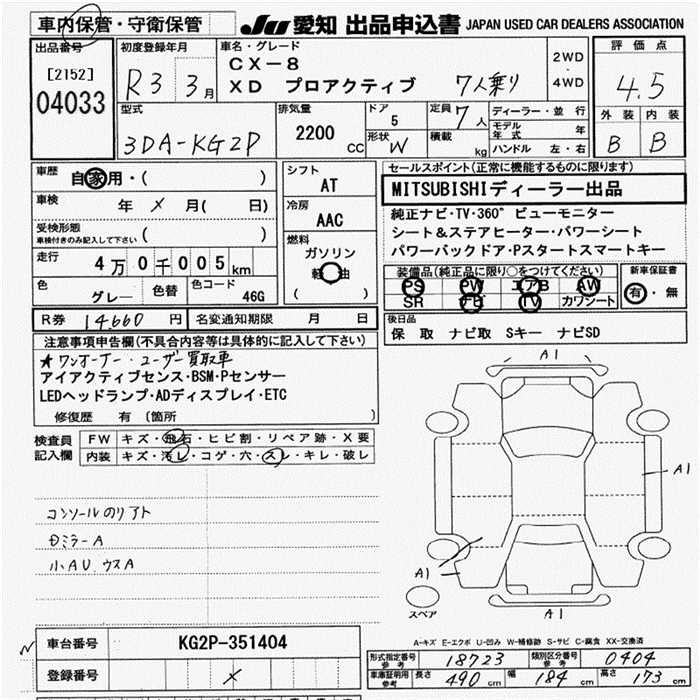 車内保管・守衛保管
JU 愛知 出品申込書 JAPAN USED CAR DEALERS ASSOCIATION
出品番号
[2152]
04033
初度登録年月
R3 3月
車名・グレード
CX-8
XD プロアクティブ 7人乗り
2WD
・
4WD
評価点
4.5
外装 内装
B B
型式
3DA-KG2P
排気量
2200 CC
ドア
5
形状
W
定員 7人
積載 kg
ディーラー・並行
モデル年式 年
ハンドル 左・右
車歴
自家用・( )
車検
年 メ 月( 日)
受検形態
車検付きのみ記入して下さい
( )
走行
4万0千005km
色
グレー
色替
色コード
46G
シフト
AT
冷房
AAC
燃料
ガソリン
軽油
( )
セールスポイント(正常に機能するものに限ります)
MITSUBISHIディーラー出品
純正ナビ・TV・360°ビューモニター
シート&ステアヒーター・パワーシート
パワーバックドア・Pスタートスマートキー
装備品(純正品に限り○をつけてください)
PS PW エアB AW
SR ナビ TV カワシート
新車保証書
有・無
R券 14,660円
名変通知期限 月 日
後日品
保 取 ナビ取 Sキー ナビSD
注意事項申告欄(不具合内容等は具体的に記入して下さい)
★ワンオーナー・ユーザー買取車
アイアクティブセンス・BSM・Pセンサー
LEDヘッドランプ・ADディスプレイ・ETC
修復歴 有 〔箇所 〕
検査員
記入欄
FW キズ・飛石・ヒビ割・リペア跡・X要
内装 キズ・汚レ・コゲ・穴・スレ・キレ・破レ
コンソールのリアト
ミラーA
小AU.ウスA
A1
A1
A1
A1
スペア
A-キズ E-エクボ U-凹み W-補修跡 S-サビ C-腐食 XX-交換済
車台番号 KG2P-351404
登録番号 メ
形式指定番号
参考
18723
類別区分番号
参考
0404
車庫証明用
参考
長さ 490 cm 幅 184 cm 高さ 173 cm